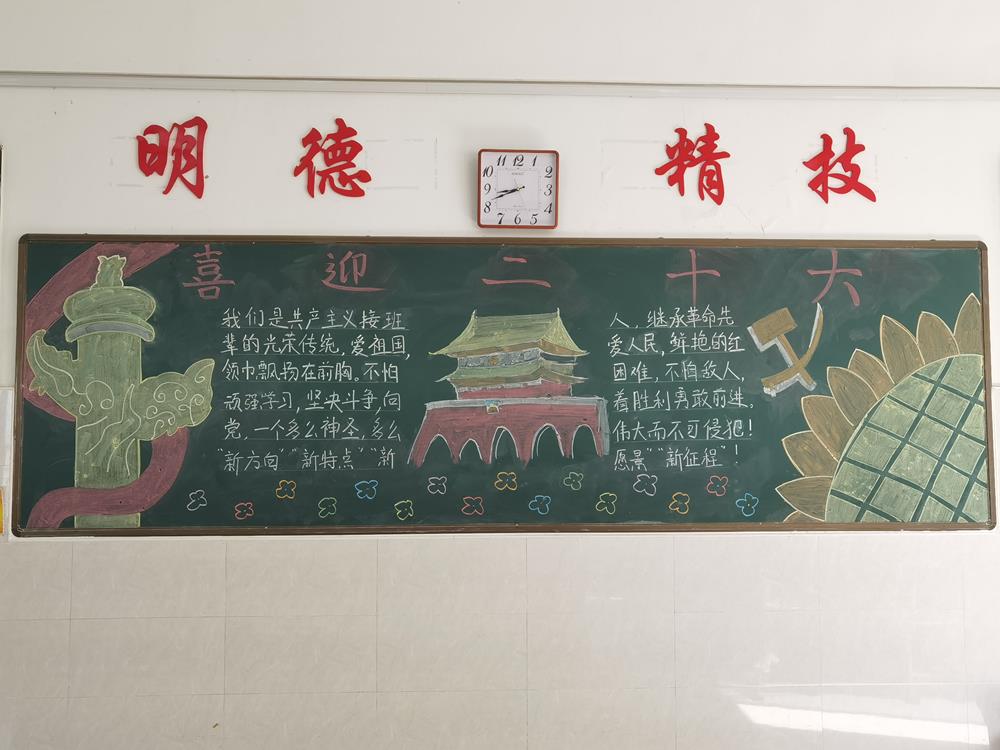 明德 精技
11 12 1
10 2
9 3
8 4
7 6 5
喜迎二十大
我们是共产主义接班人，继承革命先
辈的光荣传统，爱祖国，爱人民，鲜艳的红
领巾飘扬在前胸。不怕困难，不怕敌人，
顽强学习，坚决斗争，向着胜利勇敢前进。
党，一个多么神圣，多么伟大而不可侵犯！
"新方向""新特点""新愿景""新征程"！